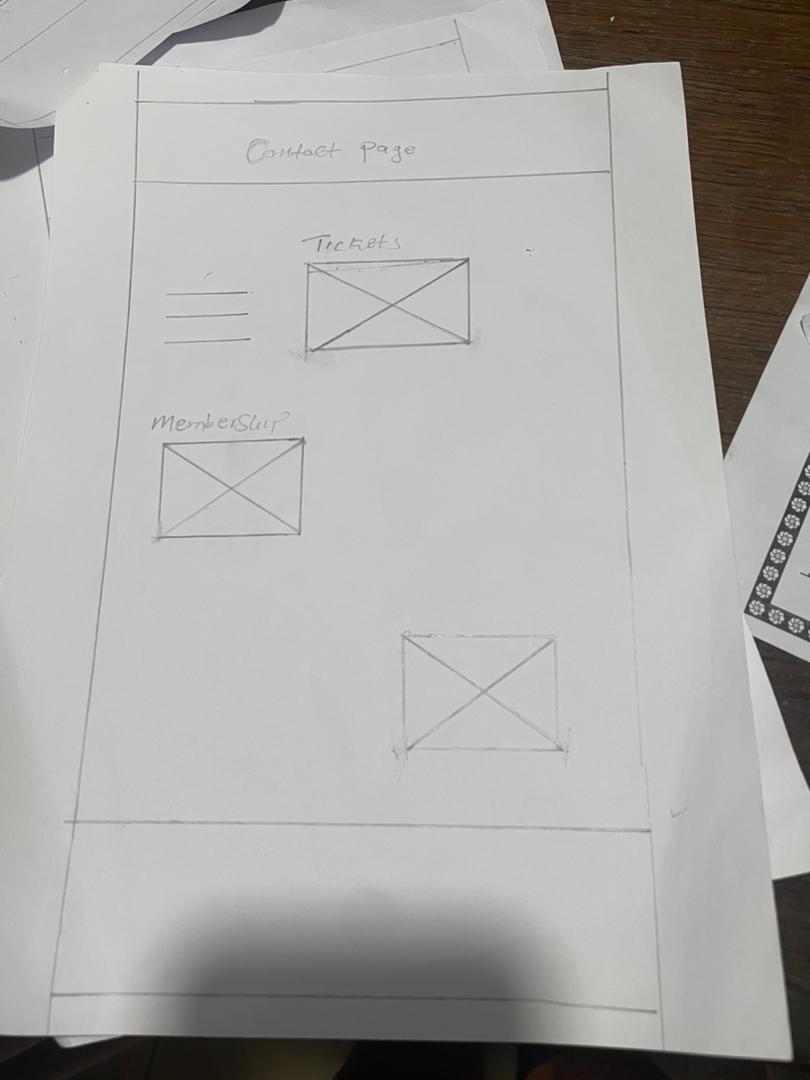 Contact page
Tickets
Membership